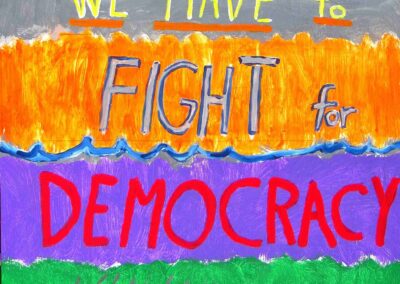 WE HAVE to
FIGHT for
DEMOCRACY